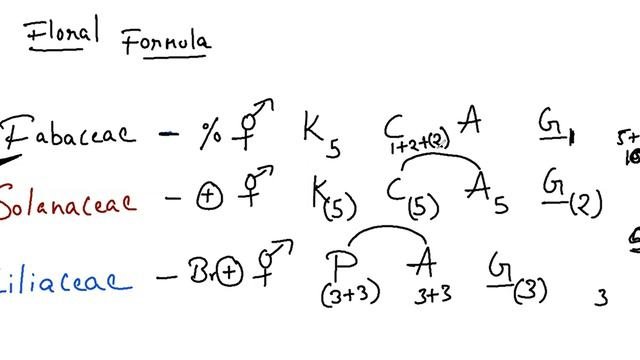 Floral Formula
Fabaceae - % ⚥ K5 C1+2+(2) A G1 5+
Solanaceae - ⊕ ⚥ K(5) C(5) A5 G(2)
Liliaceae - Br ⊕ ⚥ P(3+3) A3+3 G(3) 3